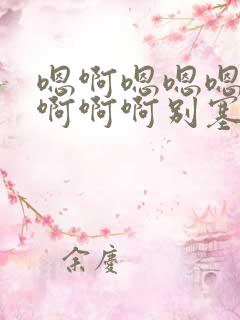 嗯啊嗯嗯嗯
啊啊啊别塞
余庆